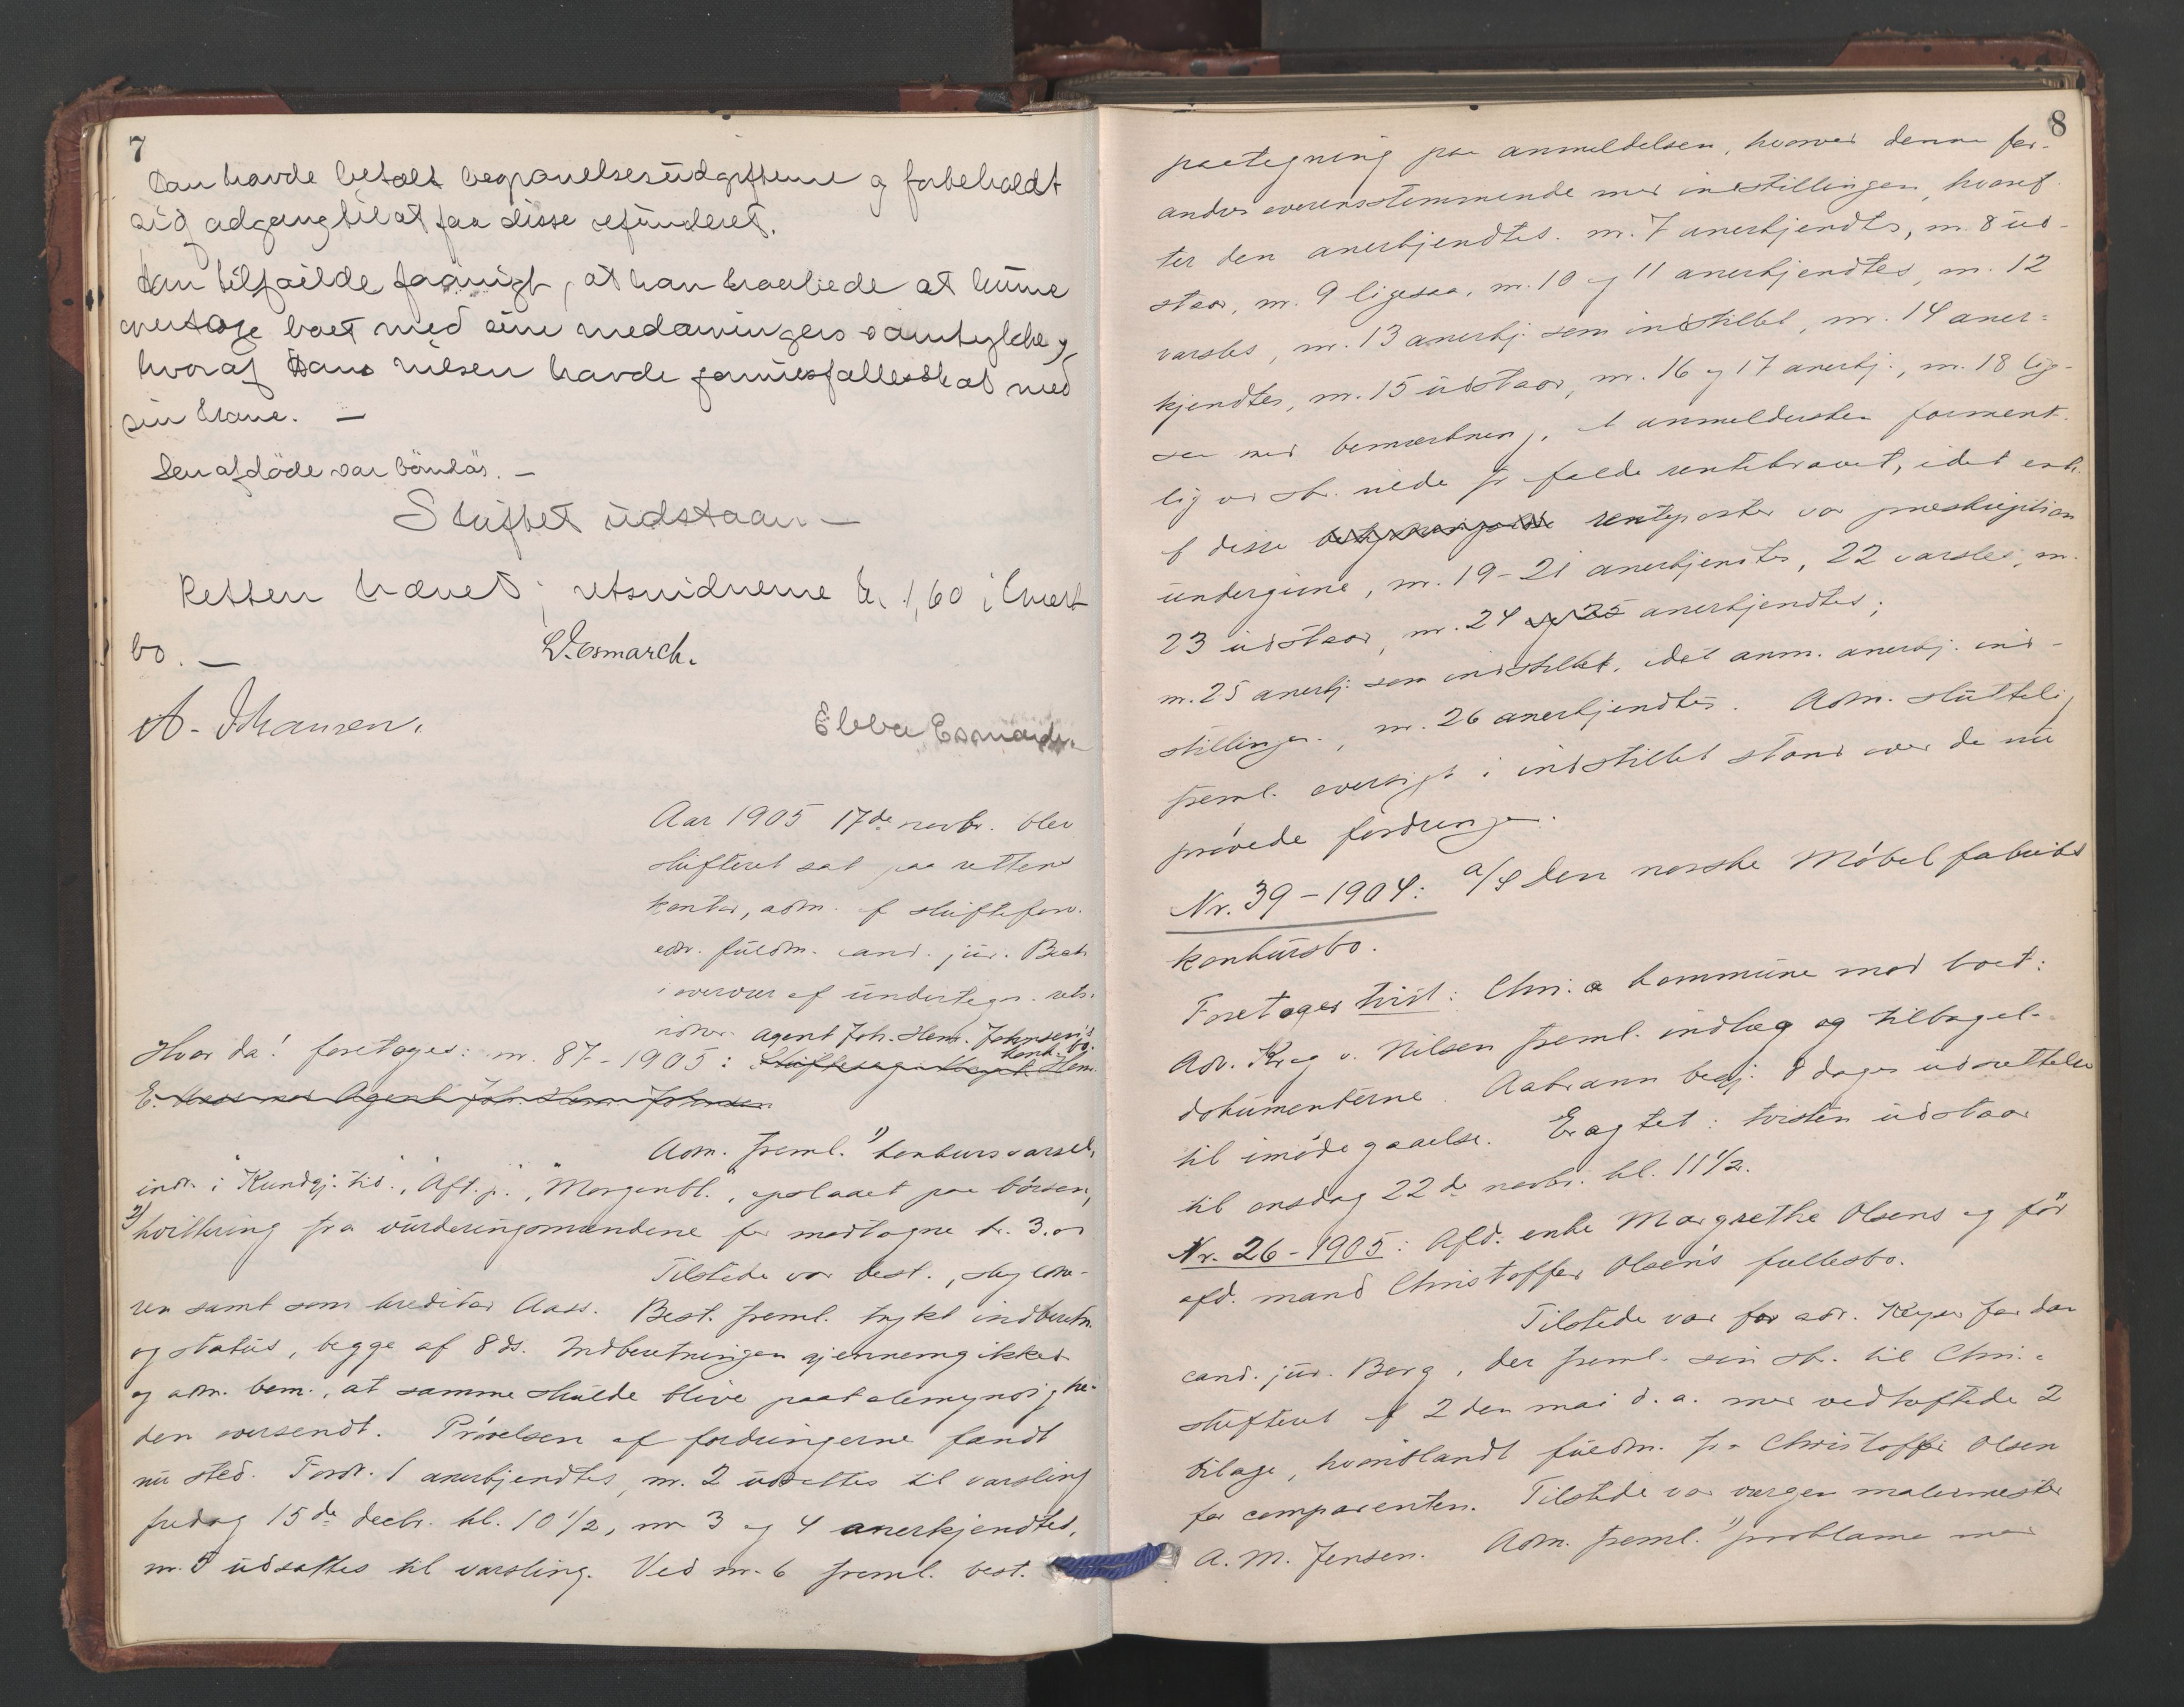 7
Han havde betalt begravelsesudgifterne og forbeholdt
sig adgang til at faa disse refunderet.
Han tilføiede forøvrigt, at han haabede at kunne
overtage boet med sine medarvingers samtykke,
hvoraf Hans Nilsen havde formuesfællesskab med
sin kone. —
Den afdöde var börnlös. —
Skiftet udstaar —
Retten hævet; retsvidnerne kr. 1,60 i hvert
bo. —
L. Esmarch.
A. Johansen.
Ebba Esmarch.
Aar 1905 17de novbr. blev
skifteret sat paa rettens
kontor, adm. af skifteforv.
edsv. fuldm. cand. jur.
i overvær af undertegn. rets-
vidner.
Hvor da! foretoges: nr. 87-1905: Agent Joh. Henr. Johnsen's konk.bo.
Adm. freml. 1) konkursvarsel,
indr. i "Kundgj. tid.", "Aft.p.", "Morgenbl.", opslaaet paa börsen,
2) kvittering fra vurderingsmændene for modtagne kr. 3.00
Tilstede var best., skyldne-
ren samt som kreditor Aass. Best. freml. trykt indberetn.
og status, begge af 8 ds. Indberetningen gjennemgikkes
og adm. bem., at samme skulde blive paatalemyndighe-
den oversendt. Prövelsen af fordringerne fandt
nu sted. Fordr. 1 anerkjendtes, nr. 2 udsattes til varsling
fredag 15de decbr. kl. 10 1/2, nr 3 og 4 anerkjendtes,
nr. 5 udsattes til varsling. Ved nr. 6 freml. best.
8
paategning paa anmeldelsen, hvorved denne for-
andres overensstemmende med indstillingen, hvoref-
ter den anerkjendtes. nr. 7 anerkjendtes, nr. 8 ud-
staar, nr. 9 ligesaa, nr. 10 og 11 anerkjendtes, nr. 12
varsles, nr. 13 anerkj. som indstillet, nr. 14 aner-
kjendtes, nr. 15 udstaar, nr. 16 og 17 anerkj., nr. 18 lige-
saa med bemærkning, at anmeldersken forment-
lig vil nede fr falde rentekravet, idet enk.
af disse renteposter var preskription
undergivne, nr. 19-21 anerkjendtes, 22 varsles, nr.
23 udstaar, nr. 24 og 25 anerkjendtes;
nr. 25 anerkj. som indstillet, idet anm. anerkj. ind-
stillingen, nr. 26 anerkjendtes. Adm. sluttelig
freml. oversigt i indstillet stand over de nu
prövede fordringer.
Nr. 39-1904: A/S Den norske Möbelfabriks
konkursbo.
Foretoges tvist: Chri.a kommune mod boet:
Adv. Krag v. Nilsen freml. indlæg og tilbagel.
dokumenterne. Aabrann begj. 8 dages udsættelse
til imödegaaelse. Eragtet: tvisten udstaar
til onsdag 22de novbr. kl. 11 1/2.
Nr. 26-1905: Afd. enke Margrethe Olsens og för
afd. mand Christoffer Olsen's fællesbo.
Tilstede var for adv. Keyser for dan
cand. jur. Berg, der freml. sin sk. til Chri.a
skifteret af 2den mai d.a. med vedheftede 2
bilage, hvoriblandt fuldm. fra Christoffer Olsen
for comparenten. Tilstede var værgen malermester
A. M. Jensen. Adm. freml. 1) proklama med